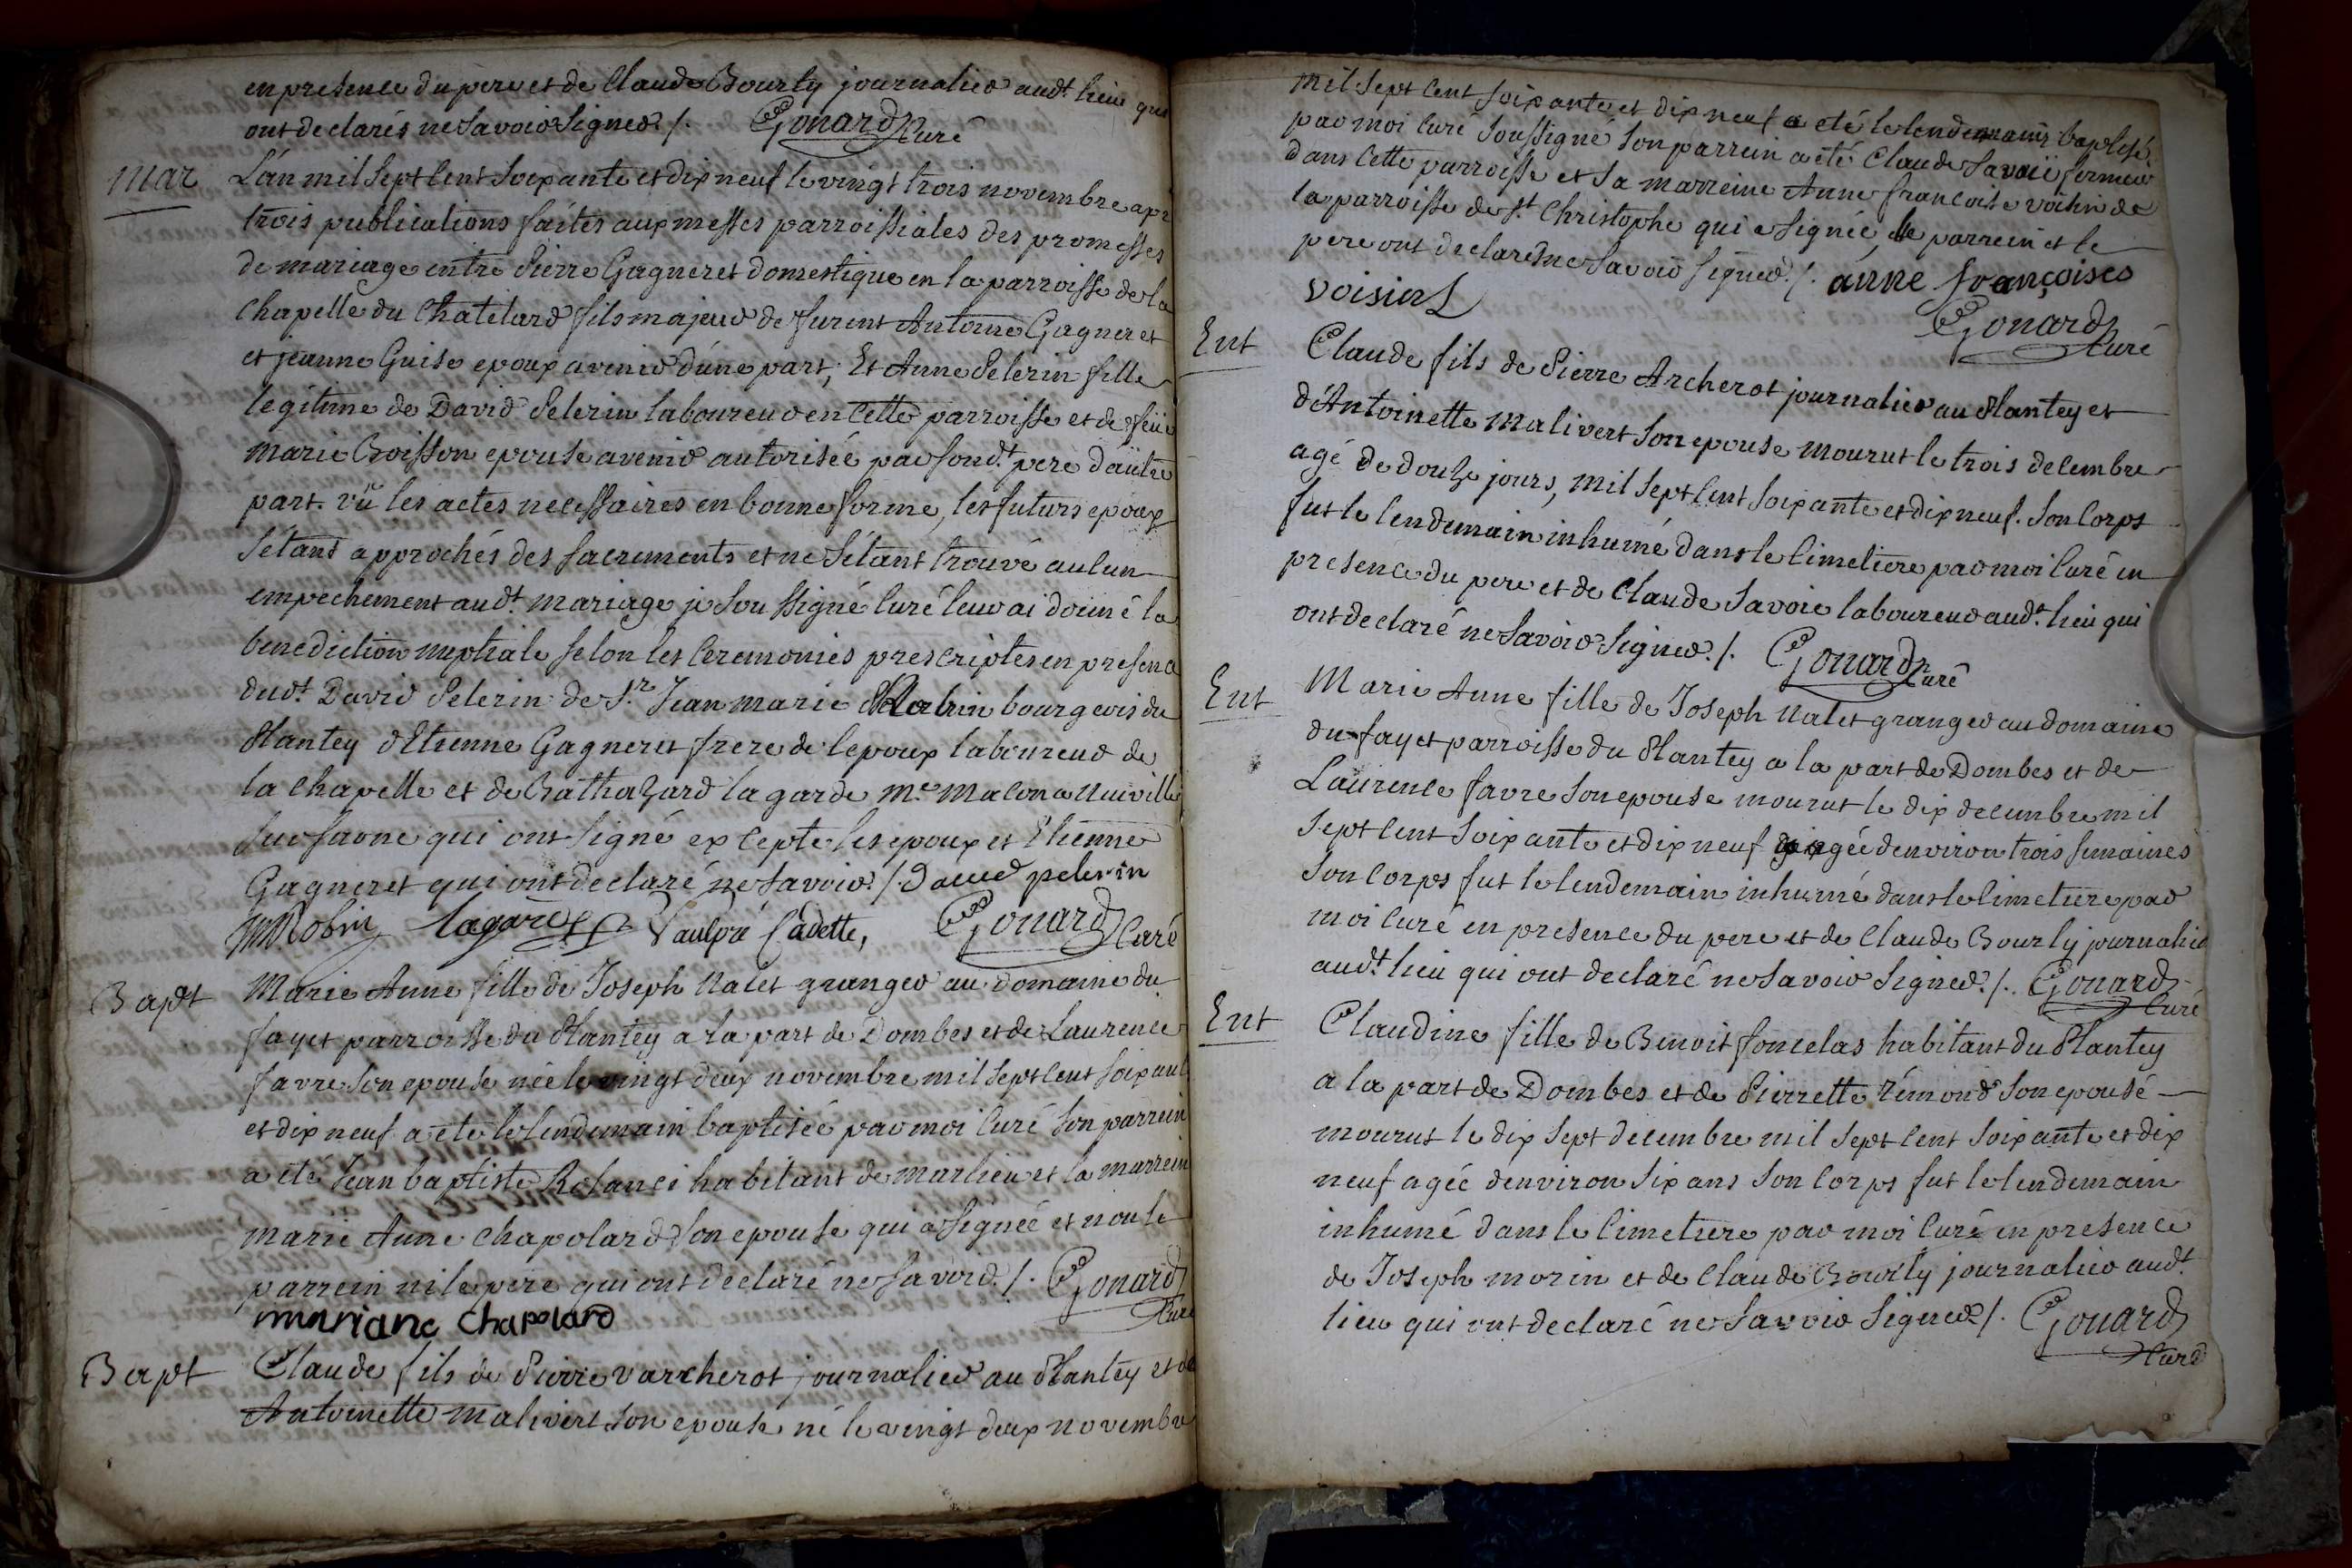 en presence du pere et de Claude Bourly journalier audt. lieu qui
ont declarés ne savoir signer ./. Gonard Curé
Mar
L'an mil sept cent soixante et dix neuf le vingt trois novembre apr
trois publications faites aux messes parroissiales des promesses
de mariage entre Pierre Gagneret domestique en la parroisse de la
Chapelle du Chatelard fils majeur de furent Antoine Gagneret
et jeanne Guise epoux avenir d'une part, Et Anne Pelerin fille
legitime de David Pelerin laboureur en cette parroisse et de feüe
Marie Boisson epouse avenir autorisée par sond.t pere d'autre
part. vû les actes necessaires en bonne forme, les futurs epoux
s'étant approchés des sacrements et ne s'étant trouvé aucun
empechement audt. mariage je soussigné curé leur ai donné la
benediction nuptiale selon les ceremonies prescriptes en presence
dudt. David Pelerin de Sr. Jean Marie Robin bourgeois du
Plantey d'Etienne Gagneret frere de l'epoux laboureur de
la Chapelle et de Balthazard lagarde Me. Macon a Neuville
sur saone qui ont signé excepté les epoux et Etienne
Gagneret qui ont declaré ne savoir ./. David pelerin
JM Robin lagarde Vaulpré Cadette, Gonard Curé
Bapt
Marie Anne fille de Joseph Nalet granger au domaine du
fayet parroisse du Plantey a la part de Dombes et de Laurence
favre son epouse née le vingt deux novembre mil sept cent soixant
et dix neuf a été le lendemain baptisée par moi Curé son parrein
a été Jean baptiste Rolanci habitant de marlieu et la marrein
marie Anne Chapolard son epouse qui a signée et non le
parrein ni le pere qui ont declaré ne savoir ./. Gonard
Curé
marianc Chapolard
Bapt
Claude fils de Pierre Varcherot journalier au Plantey et de
Antoinette Malivert son epouse né le vingt deux novembre
mil sept cent soixante et dix neuf a eté le lendemain baptisé
par moi Curé soussigné son parrein a été Claude Savoie fermier
dans cette parroisse et sa marreine Anne francoise voisin de
la parroisse de St Christophe qui a signée, le parrein et le
pere ont declaré ne savoir signer ./. anne françoises
voisin Gonard
Curé
Ent
Claude fils de Pierre Archerot journalier au Plantey et
d'Antoinette Malivert son epouse mourut le trois decembre
agé de douze jours, mil sept cent soixante et dix neuf. Son corps
fut le lendemain inhumé dans le cimetiere par moi Curé en
presence du pere et de Claude Savoie laboureur audt. lieu qui
ont declaré ne savoir signer ./. Gonard Curé
Ent
Marie Anne fille de Joseph Nalet granger au domaine
du fayet parroisse du Plantey a la part de Dombes et de
Laurence favre son epouse mourut le dix decembre mil
sept cent soixante et dix neuf agée d'environ trois semaines
son corps fut le lendemain inhumé dans le cimetiere par
moi curé en presence du pere et de Claude Bourly journalier
audt. lieu qui ont declaré ne savoir signer ./. Gonard
Curé
Ent
Claudine fille de Benoit foncelas habitant du Plantey
a la part de Dombes et de Pierrette rémond son epouse
mourut le dix sept decembre mil sept cent soixante et dix
neuf agée d'environ six ans son corps fut le lendemain
inhumé dans le cimetiere par moi Curé en presence
de Joseph morin et de Claude Bourly journalier audt.
lieu qui ont declaré ne savoir signer ./. Gonard
Curé